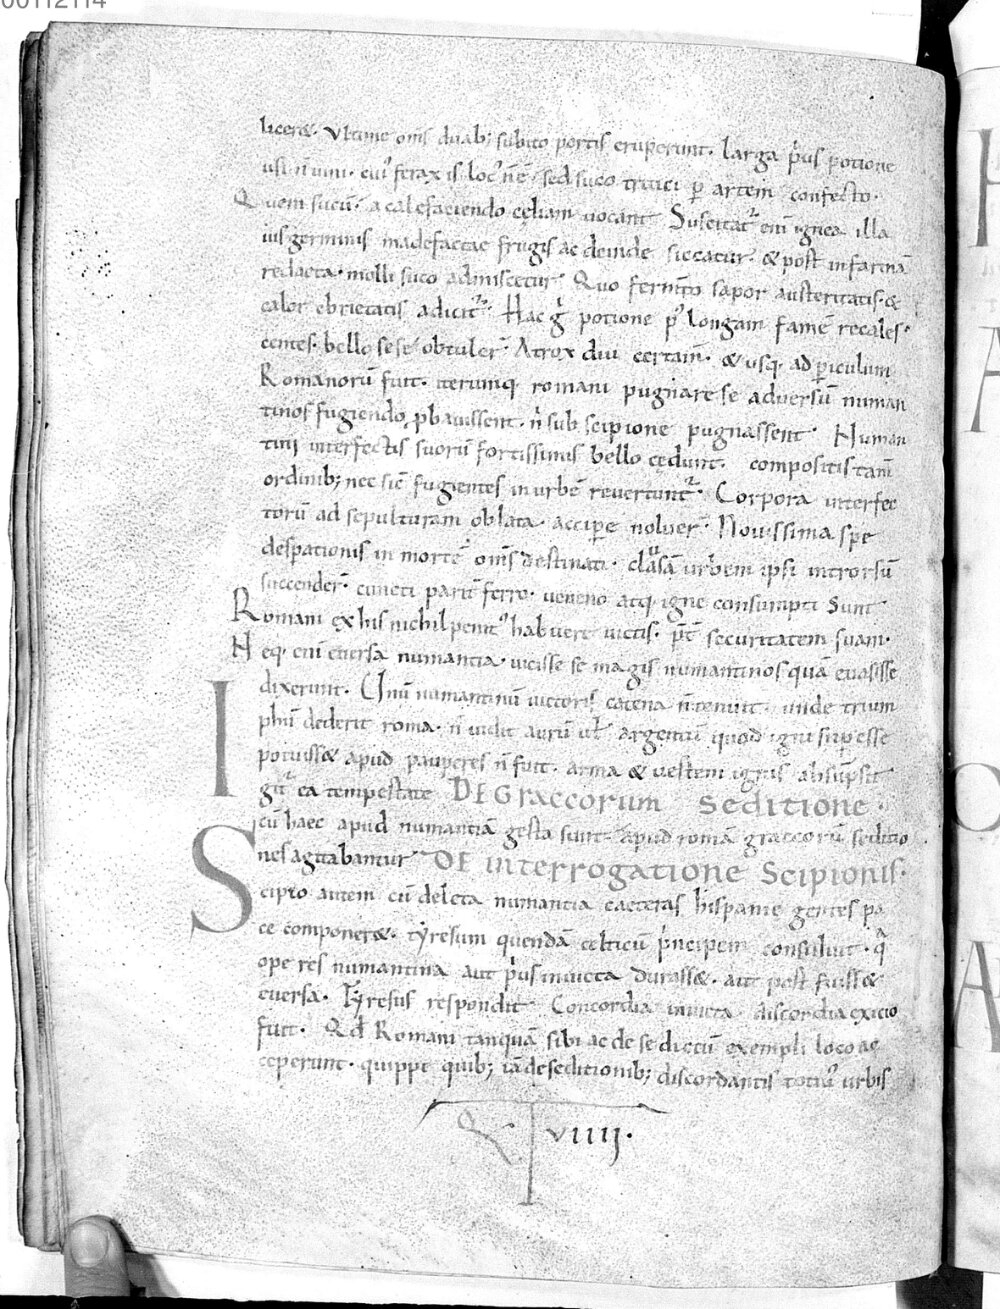 00112114
licer&. Vltime om̄s duab; subito portis eruperunt. larga p̍us potione
usi n̄ uini. cui' ferax is loc' n̄ ē. sed suco tritici p artem confecto.
Quem sucū. a calefaciendo cęliam uocant Suscitat᷑ eni ignea illa
uis germinis madefactae frugis ac deinde siccatur. & post in farinā
redacta. molli suco admiscetur Quo fermto sapor austeritatis. &
calor ebrietatis adicit᷑. Hac g̍ potione p' longam famē recales.
centes. bello sese obtuler̄. Atrox diu certam̄. & usq. ad piculum
Romanorū fuit. iterumq romani pugnare se aduersū numan
tinos fugiendo, pbauissent. n̍ sub scipione pugnassent. Numan
tini interfectis suorū fortissimis bello cędunt. compositis tam̄
ordinib; nec sic̄ fugientes in urbē reuertunt᷑. Corpora interfec
torū ad sepulturam oblata. accipe noluer̄. Nouissima spe
despationis in mortē om̄s destinati. clausā urbem ipsi introrsū
succender̄. cuncti parit̄ ferro. ueneno atq. igne consumpti Sunt
Romani ex his nichil penit' habuere uictis. p̄t securitatem suam.
Neq. eni euersa numantia. uicisse se magis numantinos quā euasisse
dixerunt. Unū numantinū uictoris catena n̄ tenuit. unde trium
phū dederit roma. n̄ uidit aurū ul̄ argentū quod igni supesse
potuiss& apud pauperes n̄ fuit. arma & uestem ignis absūpsit
Igit᷑ ea tempestate DE GRACCORUM SEDITIONE.
cū haec apud numantiā gesta sunt. apud romā graccorū seditio
nes agitabantur DE INTERROGATIONE SCIPIONIS.
Scipio autem cū deleta numantia caeteras hispanie gentes pa
ce componer&. tẏresum quendā celticū p̍ncipem consuluit. q̍
ope res numantina aut p̍us inuicta durass&. aut post fuiss&
euersa. Tẏresus respondit Concordia inuicta discordia exicio
fuit. Qd̄ Romani tanquā sibi ac de se dictū exempli loco ac
ceperunt. quippe quib; iā de seditionib; discordantis toti' urbis
Q VIIII.